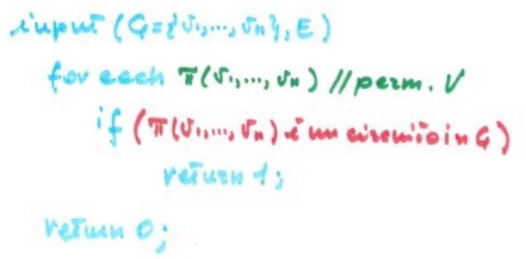 input (G={v₁,...,vₙ}, E)
for each π(v₁,...,vₙ) // perm. V
if (π(v₁,...,vₙ) è un circuito in G)
return 1;
return 0;